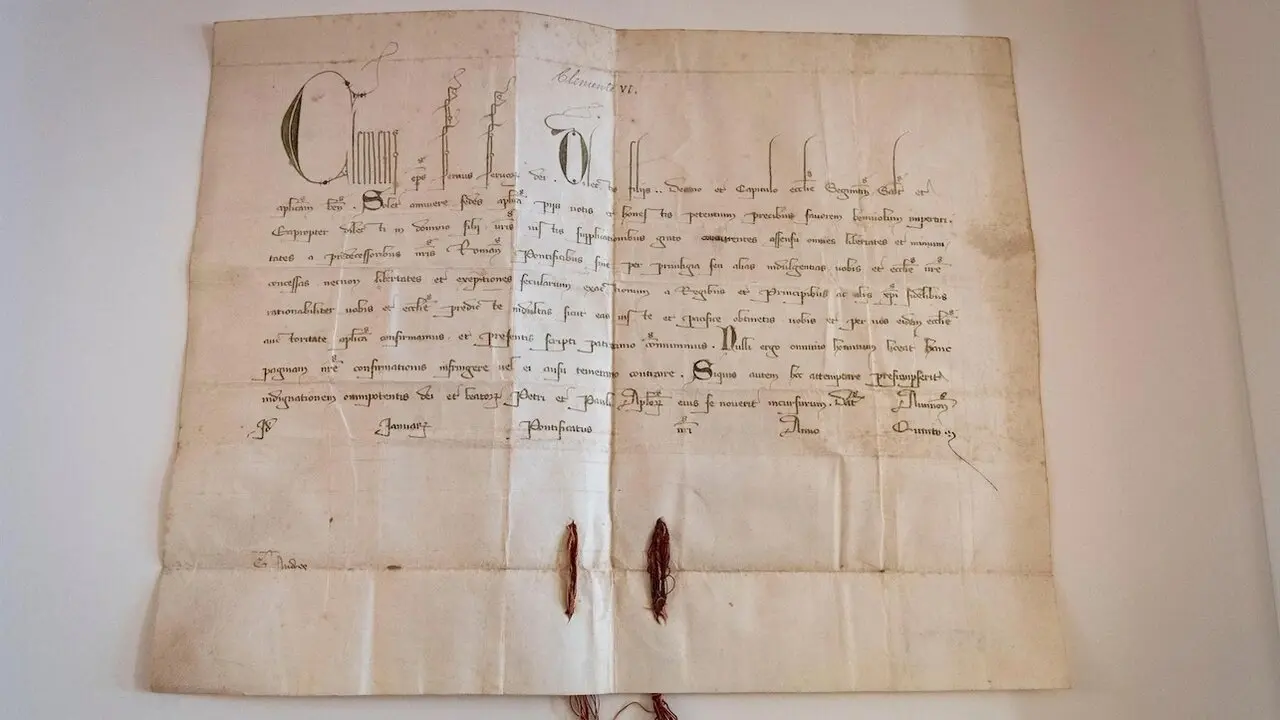 Clemente VI.
Clemens eps servus servorꝫ dei. Dilectis filijs.. Decano et Capitulo ecclie
aplicam ben. Solet annuere sedes aplica pijs votis et honestis petentium precibus favorem benivolum impertiri.
Eapropter dilecti in domino filij vris iustis supplicationibus grato concurrentes assensu omnes libertates et immuni
tates a predecessoribus nris Roman Pontificibus sive per privilegia seu alias indulgentias vobis et ecclie vre
concessas necnon libertates et exemptiones secularium exactionum a Regibus et Principibus ac alijs xpi fidelibus
rationabiliter vobis et ecclie predicte indultas sicut eas iuste et pacifice obtinetis vobis et per vos eidem ecclie
auctoritate aplica confirmamus et presentis scripti patrocinio communimus. Nulli ergo omnino hominum liceat hanc
paginam nre confirmationis infringere vel ei ausu temerario contraire. Siquis autem hoc attemptare presumpserit
indignationem omnipotentis dei et beatorꝫ Petri et Pauli Aplorꝫ eius se noverit incursurum. Dat Avinion
Januarꝫ Pontificatus nri Anno Quinto
Andree